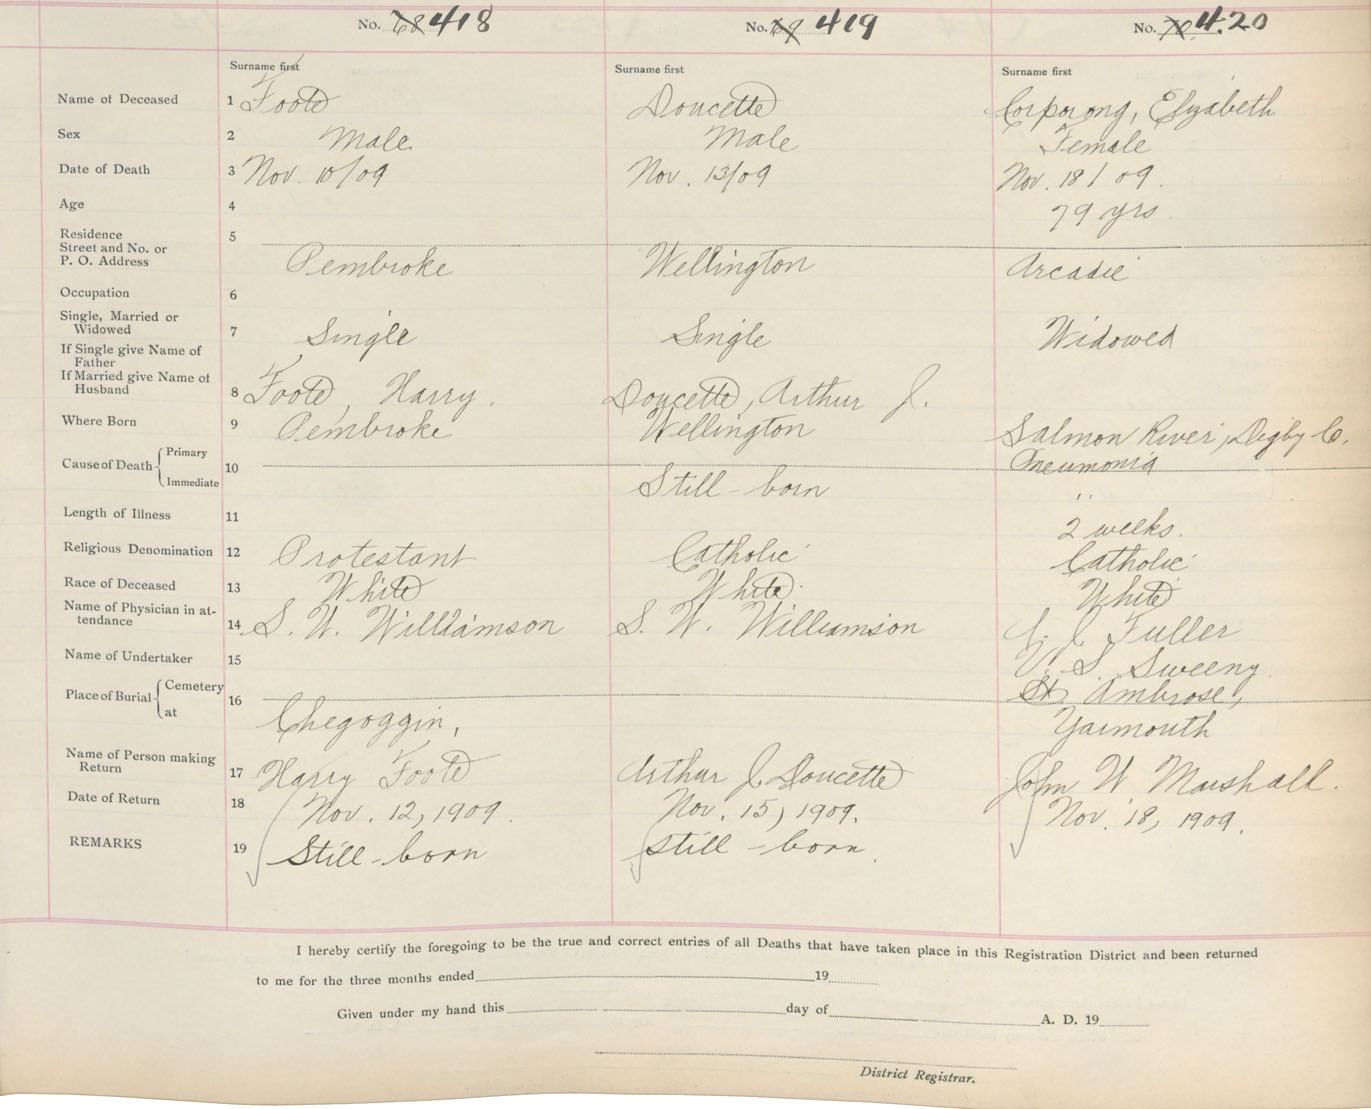 No. 68 418 No. 69 419 No. 70 420
Surname first Surname first Surname first
Name of Deceased 1 Foote Doucette Corporong, Elizabeth
Sex 2 Male Male Female
Date of Death 3 Nov. 10/09 Nov. 13/09 Nov. 18/09.
Age 4 79 yrs
Residence
Street and No. or 5
P. O. Address Pembroke Wellington Arcadie
Occupation 6
Single, Married or
Widowed 7 Single Single Widowed
If Single give Name of
Father
If Married give Name of
Husband 8 Foote, Harry. Doucette, Arthur J.
Where Born 9 Pembroke Wellington Salmon River, Digby Co.
Cause of Death Primary 10 Pneumonia
Immediate Still-born "
Length of Illness 11 2 weeks.
Religious Denomination 12 Protestant Catholic Catholic
Race of Deceased 13 White White White
Name of Physician in at-
tendance 14 S. W. Williamson S. W. Williamson Fuller
Name of Undertaker 15 V. S. Sweeny
Place of Burial Cemetery 16 St Ambrose,
at Chegoggin, Yarmouth
Name of Person making
Return 17 Harry Foote Arthur J. Doucette John W Marshall.
Date of Return 18 Nov. 12, 1909. Nov. 15, 1909. Nov. 18, 1909.
REMARKS 19 Still-born Still-born.
I hereby certify the foregoing to be the true and correct entries of all Deaths that have taken place in this Registration District and been returned
to me for the three months ended 19
Given under my hand this day of A. D. 19
District Registrar.